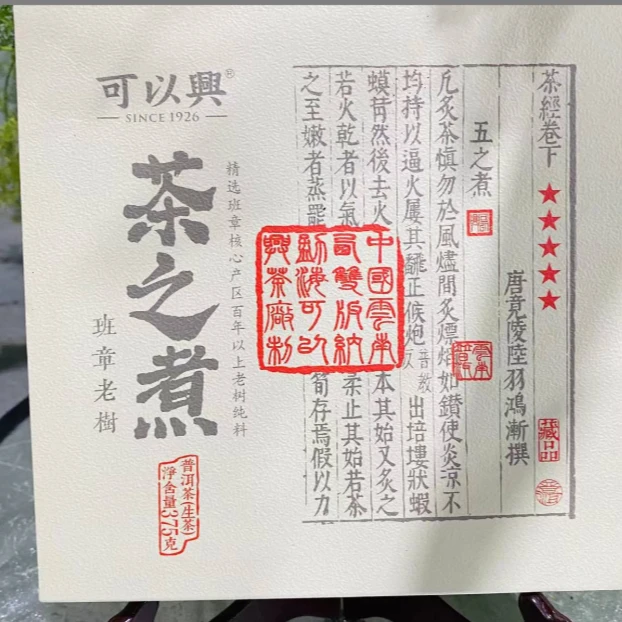 可以興®
SINCE 1926
茶之煮
精选班章核心产区百年以上老树纯料
班章老樹
普洱茶(生茶)
淨含量375克
茶經卷下 ★★★★★
藏品
唐竟陵陸羽鴻漸撰
五之煮
凡炙茶慎勿於風燼間炙熛焰如鑽使炎涼不
均持以逼火屢其飜正候炮出培塿狀蝦
蟆背然後去火本其始又炙之
若火乾者以氣柔止其始若茶
之至嫩者蒸罷筍存焉假以力
中國雲南
西雙版納
勐海可以
興茶廠制